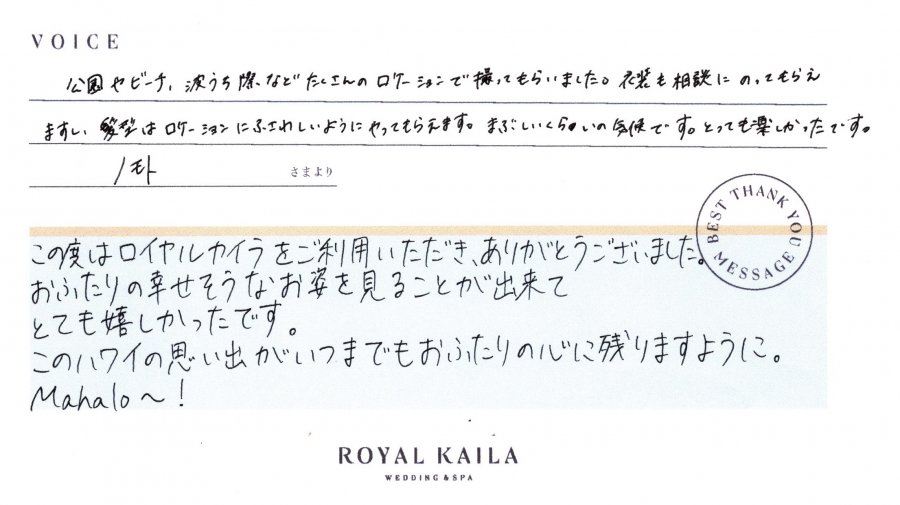 VOICE
公園やビーチ、波うち際などたくさんのロケーションで撮ってもらいました。衣装も相談にのってもらえ
ますし、髪型はロケーションにふさわしいようにやってもらえます。まぶしいくらいの気候です。とっても楽しかったです。
ノモト さまより
BEST THANK YOU MESSAGE
この度はロイヤルカイラをご利用いただき、ありがとうございました。
おふたりの幸せそうなお姿を見ることが出来て
とても嬉しかったです。
このハワイの思い出がいつまでもおふたりの心に残りますように。
Mahalo〜!
ROYAL KAILA
WEDDING & SPA